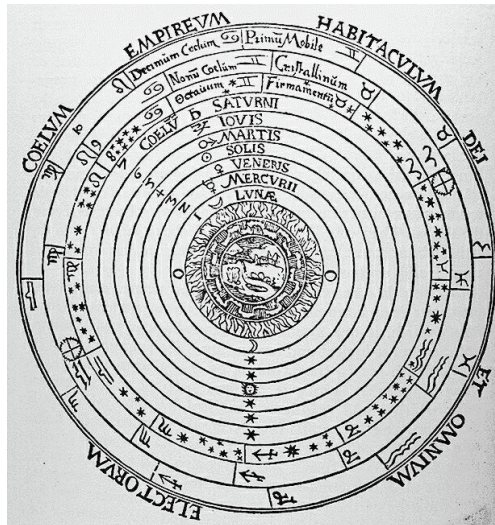 COELVM EMPIREVM HABITACVLVM DEI ET OMNIVM ELECTORVM
Decimum Coelum Primū Mobile
Nonū Coelum Cristallinum
Octauum Firmamentū
COELV SATVRNI
IOVIS
MARTIS
SOLIS
VENERIS
MERCVRII
LVNÆ
7 6 5 4 3 2 1